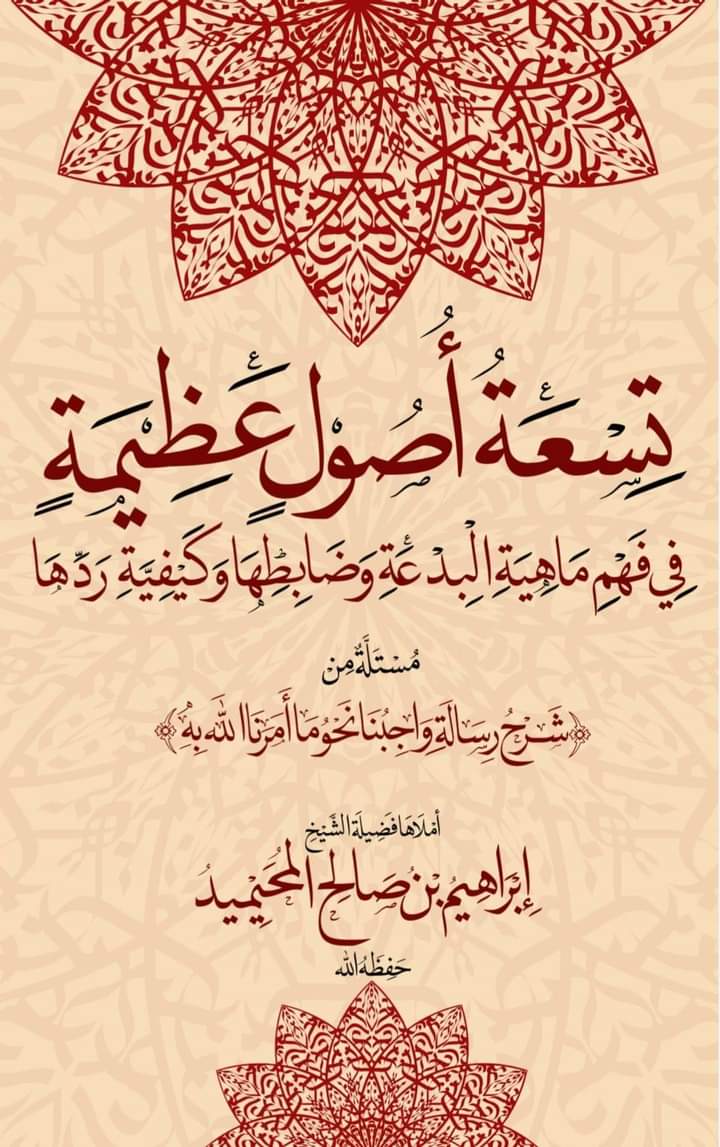 تِسْعَةُ أُصُوْلٍ عَظِيْمَةٍ
فِي فَهْمِ مَاهِيَةِ الْبِدْعَةِ وَضَابِطِهَا وَكَيْفِيَّةِ رَدِّهَا
مُسْتَلَّةٌ مِن
﴿شَرْحُ رِسَالَةِ وَاجِبُنَا نَحْوُ مَا أَمَرَنَا اللّٰه بِهِ﴾
أمْلَاهَا فَضِيلَة الشَّيْخ
إِبْرَاهِيمُ بْنُ صَالِحِ المُحَيْمِيدُ
حَفِظَهُ اللّٰه